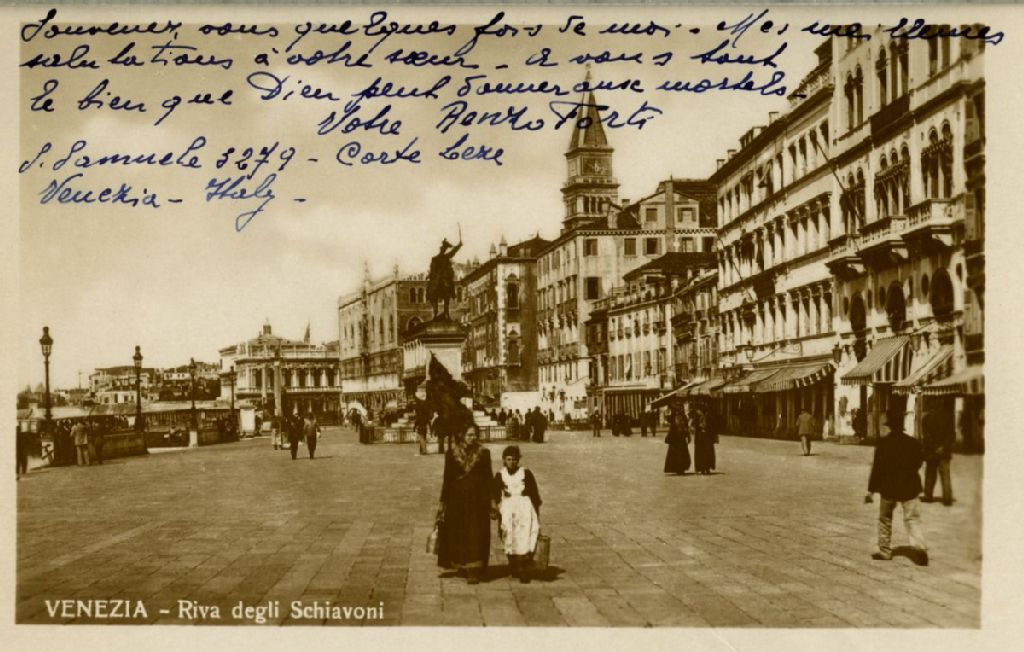 Souvenez, vous quelques fois de moi - Mes meilleures
salutations à votre sœur - à vous tout
le bien que Dieu peut donner aux mortels -
Votre Renzo Forti
S. Samuele 3279 - Corte Leze
Venezia - Italy -
VENEZIA - Riva degli Schiavoni